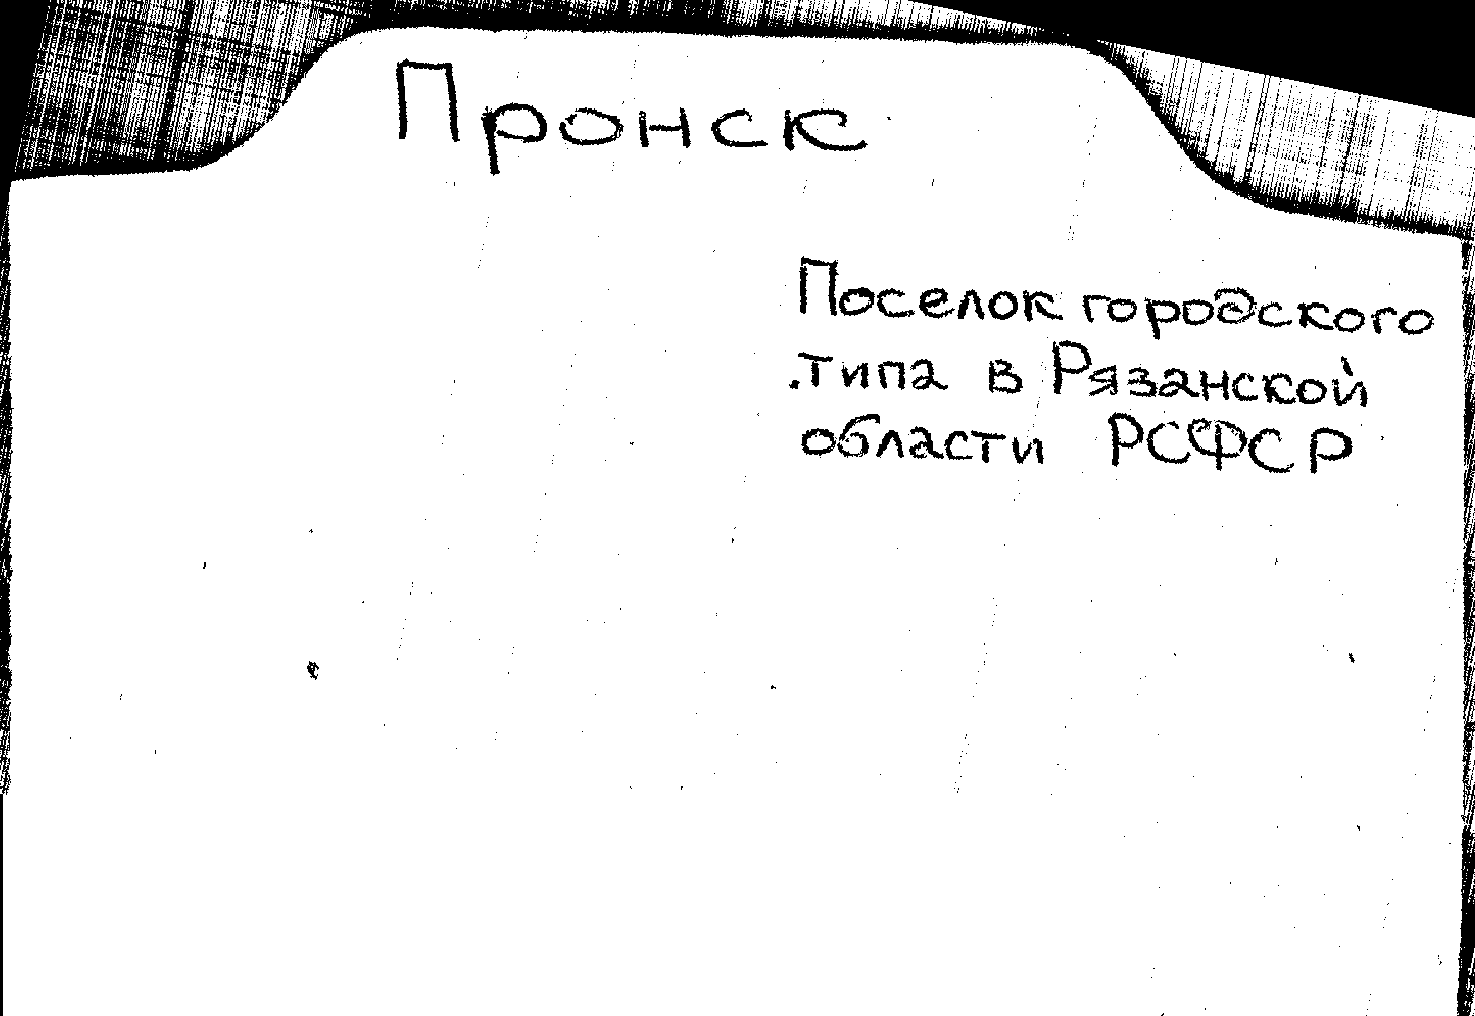 Пронск
Поселок городского
типа в Рязанской
области РСФСР